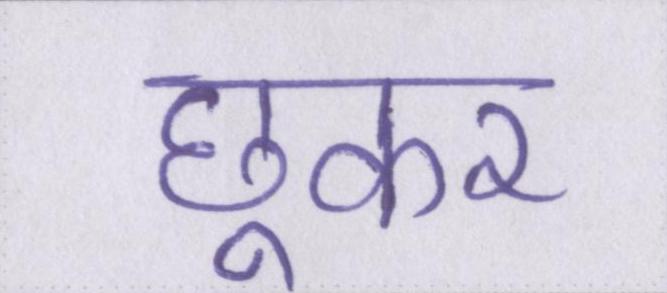 छूकर